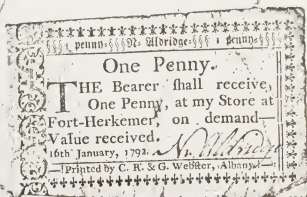 penny. N. Aldridge. penny
One Penny.
THE Bearer shall receive,
One Penny, at my Store at
Fort-Herkemer, on demand—
Value received.
16th January, 1792. N. Aldridge
Printed by C. R. & G. Webster, Albany.